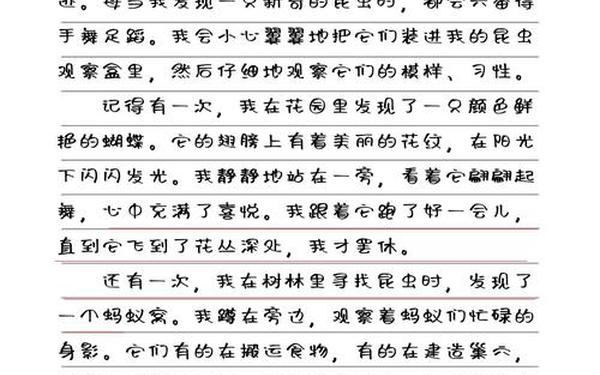 迹。每当我发现一只新奇的昆虫时，都会兴奋得
手舞足蹈。我会小心翼翼地把它们装进我的昆虫
观察盒里，然后仔细地观察它们的模样、习性。
记得有一次，我在花园里发现了一只颜色鲜
艳的蝴蝶。它的翅膀上有着美丽的花纹，在阳光
下闪闪发光。我静静地站在一旁，看着它翩翩起
舞，心中充满了喜悦。我跟着它跑了好一会儿，
直到它飞到了花丛深处，我才罢休。
还有一次，我在树林里寻找昆虫时，发现了
一个蚂蚁窝。我蹲在旁边，观察着蚂蚁们忙碌的
身影。它们有的在搬运食物，有的在建造巢穴，